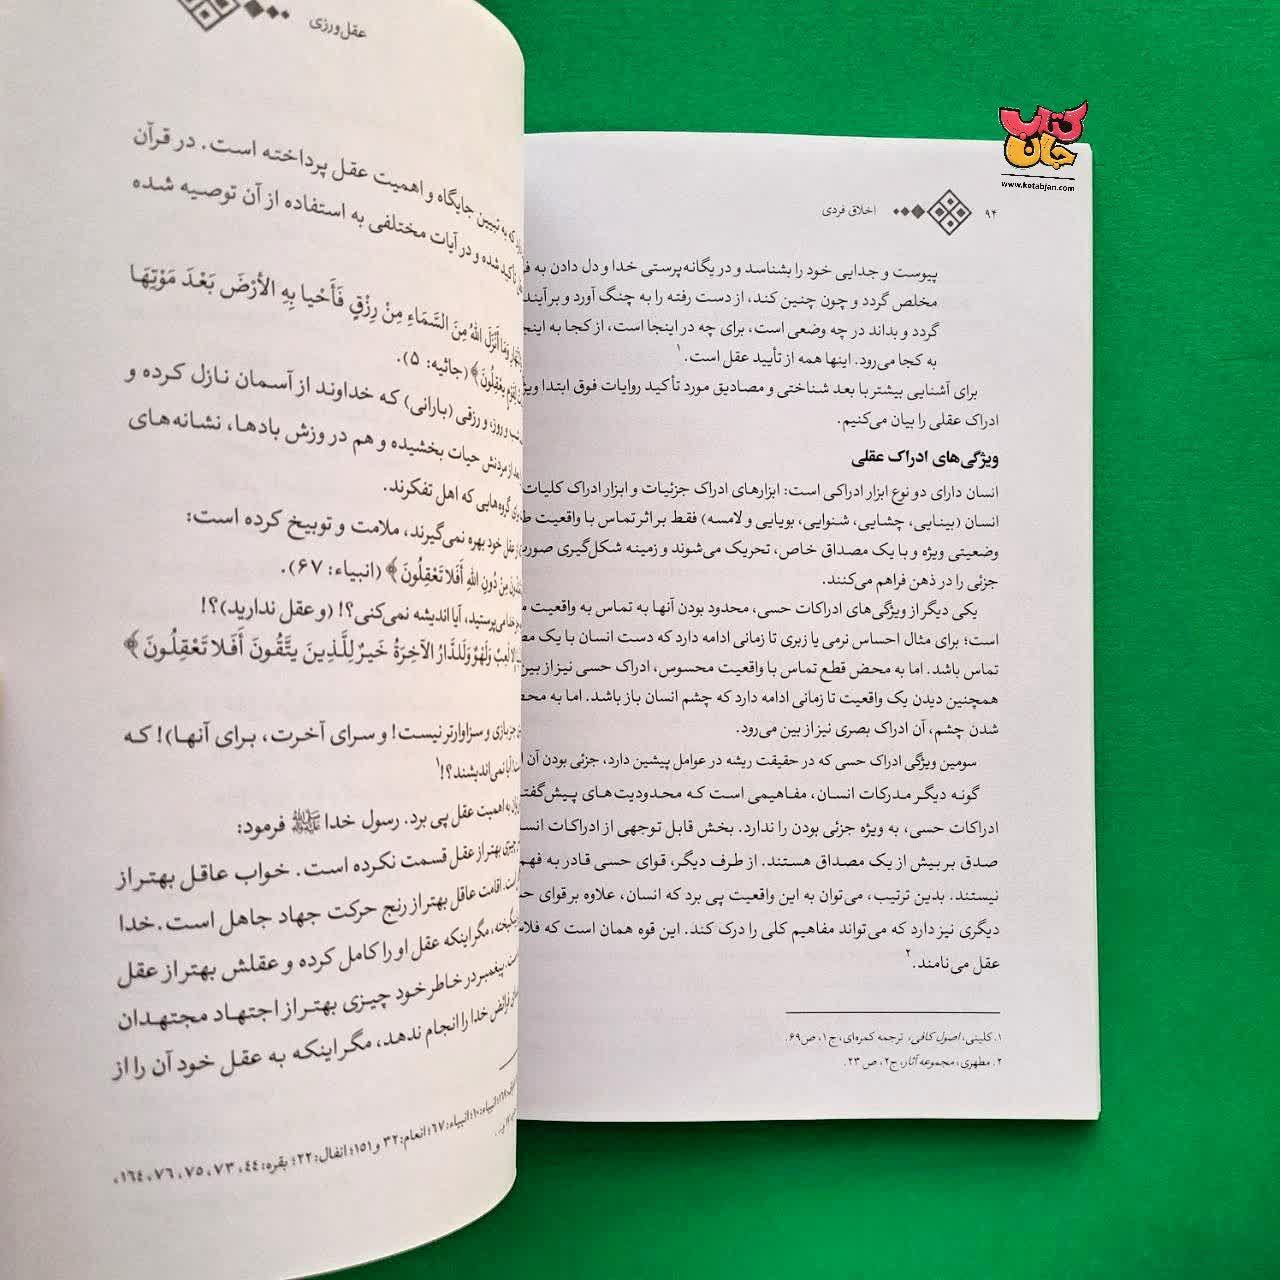 کتاب جان
www.ketabjan.com
۹۴
اخلاق فردی
پیوست و جدایی خود را بشناسد و در یگانه‌پرستی خدا و دل دادن به
مخلص گردد و چون چنین کند، از دست رفته را به چنگ آورد و برآیند
گردد و بداند در چه وضعی است، برای چه در اینجا است، از کجا به اینجا
به کجا می‌رود. اینها همه از تأیید عقل است.۱
برای آشنایی بیشتر با بعد شناختی و مصادیق مورد تأکید روایات فوق ابتدا
ادراک عقلی را بیان می‌کنیم.
ویژگی‌های ادراک عقلی
انسان دارای دو نوع ابزار ادراکی است: ابزارهای ادراک جزئیات و ابزار ادراک کلیات
انسان (بینایی، چشایی، شنوایی، بویایی و لامسه) فقط بر اثر تماس با واقعیت
وضعیتی ویژه و با یک مصداق خاص، تحریک می‌شوند و زمینه شکل‌گیری
جزئی را در ذهن فراهم می‌کنند.
یکی دیگر از ویژگی‌های ادراکات حسی، محدود بودن آنها به تماس به واقعیت
است؛ برای مثال احساس نرمی یا زبری تا زمانی ادامه دارد که دست انسان با یک
تماس باشد. اما به محض قطع تماس با واقعیت محسوس، ادراک حسی نیز از بین
همچنین دیدن یک واقعیت تا زمانی ادامه دارد که چشم انسان باز باشد. اما به
شدن چشم، آن ادراک بصری نیز از بین می‌رود.
سومین ویژگی ادراک حسی که در حقیقت ریشه در عوامل پیشین دارد، جزئی بودن آن
گونه دیگر مدرکات انسان، مفاهیمی است که محدودیت‌های
ادراکات حسی، به ویژه جزئی بودن را ندارد. بخش قابل توجهی از ادراکات
صدق بر بیش از یک مصداق هستند. از طرف دیگر، قوای حسی قادر به
نیستند. بدین ترتیب، می‌توان به این واقعیت پی برد که انسان، علاوه بر قوای
دیگری نیز دارد که می‌تواند مفاهیم کلی را درک کند. این قوه همان است که
عقل می‌نامند.۲
۱. کلینی، اصول کافی، ترجمه کمره‌ای، ج۱، ص۶۹.
۲. مطهری، مجموعه آثار، ج۲، ص ۲۳.
عقل‌ورزی
که به تبیین جایگاه و اهمیت عقل پرداخته است. در قرآن
تأکید شده و در آیات مختلفی به استفاده از آن توصیه شده
وَمَا أَنْزَلَ اللهُ مِنَ السَّمَاءِ مِنْ رِزْقٍ فَأَحْیا بِهِ الأرْضَ بَعْدَ مَوْتِهَا
یعْقِلُونَ﴾ (جاثیه: ۵).
و روز، و رزقی (بارانی) که خداوند از آسمان نازل کرده و
از مردنش حیات بخشیده و هم در وزش بادها، نشانه‌های
گروه‌هایی که اهل تفکرند.
از عقل خود بهره نمی‌گیرند، ملامت و توبیخ کرده است:
مِنْ دُونِ اللهِ أَفَلا تَعْقِلُونَ﴾ (انبیاء: ۶۷).
می‌پرستید، آیا اندیشه نمی‌کنی؟! (و عقل ندارید)؟!
لَعِبٌ وَلَهْوٌ وَلَلدَّارُ الآخِرَةُ خَیرٌ لِلَّذِینَ یتَّقُونَ أَفَلا تَعْقِلُونَ﴾
جز بازی و سزاوارتر نیست! و سرای آخرت، برای آنها)! که
آیا نمی‌اندیشند؟!۱
به اهمیت عقل پی برد. رسول خدا ﷺ فرمود:
چیزی بهتر از عقل قسمت نکرده است. خواب عاقل بهتر از
است. اقامت عاقل بهتر از رنج حرکت جهاد جاهل است. خدا
مگر اینکه عقل او را کامل کرده و عقلش بهتر از عقل
پیغمبر در خاطر خود چیزی بهتر از اجتهاد مجتهدان
فرائض خدا را انجام ندهد، مگر اینکه به عقل خود آن را از
انبیاء: ۱۰؛ انبیاء: ۶۷؛ انعام: ۳۲ و ۱۵۱؛ انفال: ۲۲؛ بقره: ۴۴، ۷۳، ۷۵، ۷۶، ۱۶۴،